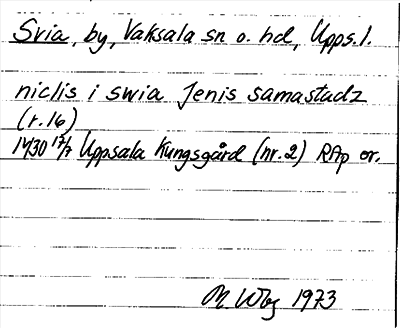 Svia, by, Vaksala sn o. hd, Upps.l.
niclis i swia Jenis samastadz
(r.16)
1430 17/7 Uppsala Kungsgård (nr.2) RAp or.
M. Wbg 1973